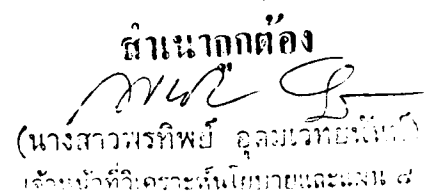 สำเนาถูกต้อง
(นางสาวพรทิพย์ อุดมเวทยนันท์)
เจ้าหน้าที่วิเคราะห์นโยบายและแผน ๘